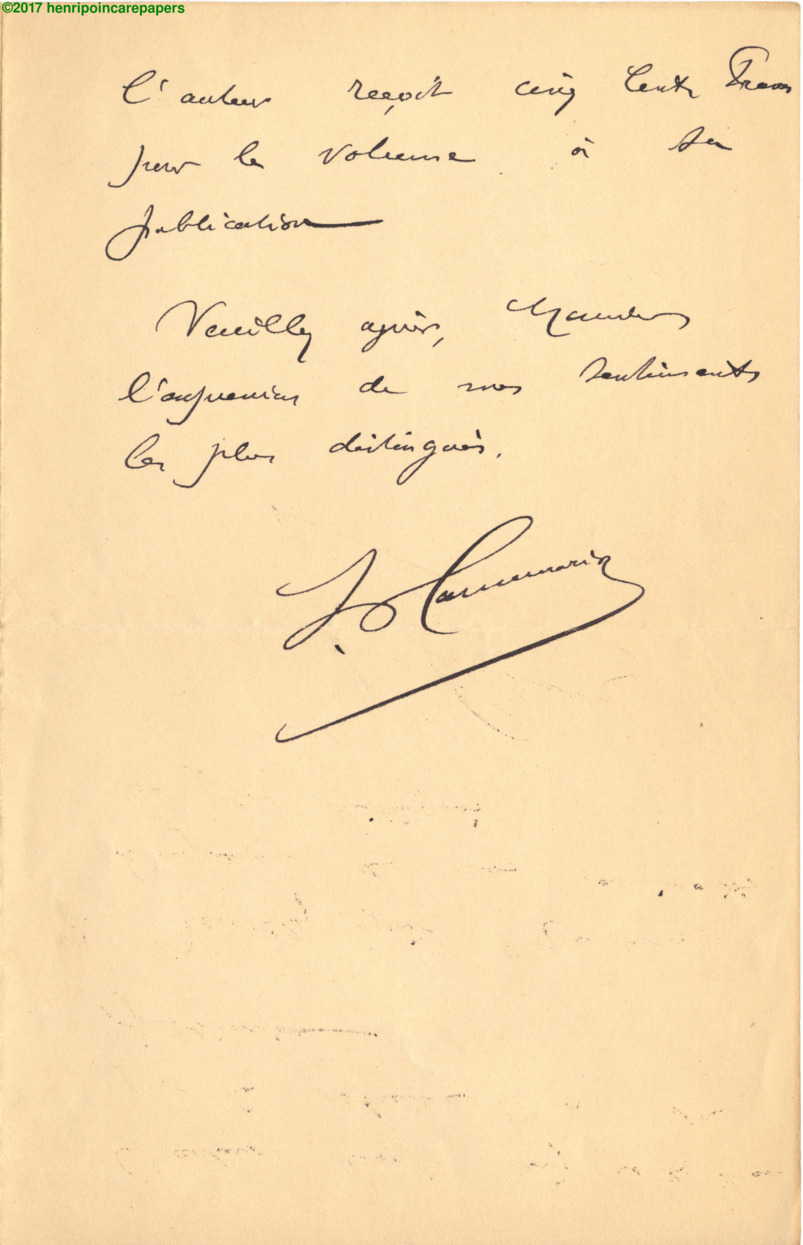 ©2017 henripoincarepapers
l'auteur reçoit cinq cents Francs
pour le volume à sa
publication
Veuillez agréer, Monsieur
l'expression de mes sentiments
les plus distingués.